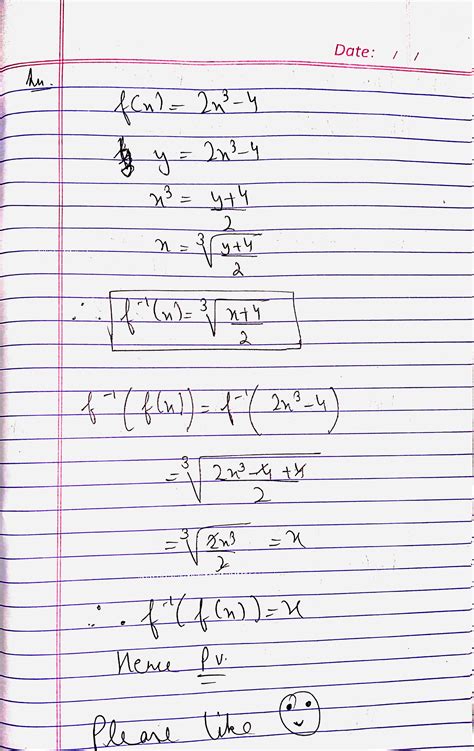 Date: / /
Au.
f(x) = 2x³-4
y = 2x³-4
x³ = y+4/2
x = ∛(y+4/2)
∴ f⁻¹(x) = ∛(x+4/2)
f⁻¹(f(x)) = f⁻¹(2x³-4)
= ∛(2x³-4+4/2)
= ∛(2x³/2) = x
∴ f⁻¹(f(x)) = x
Hence Pv.
Please like